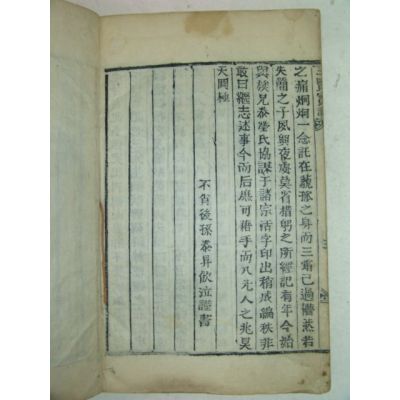 之痛炯炯一念託在藐孫之身而三霜已過懵然若
失龍之子夙興夜處莫省措躬之所經記有年今始
與族兄泰瑩氏協謀于諸宗活字印出稍成編秩非
敢曰繼志述事今而后應可藉手而八元人之兆昊
天罔極
不肖後孫泰昇飮泣謹書